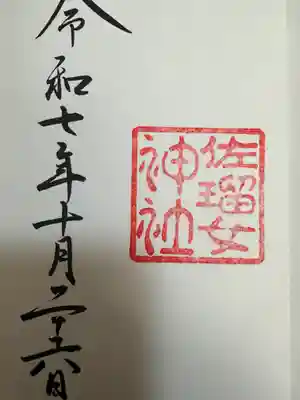 令和七年十月二十六日
佐瑠女
神社